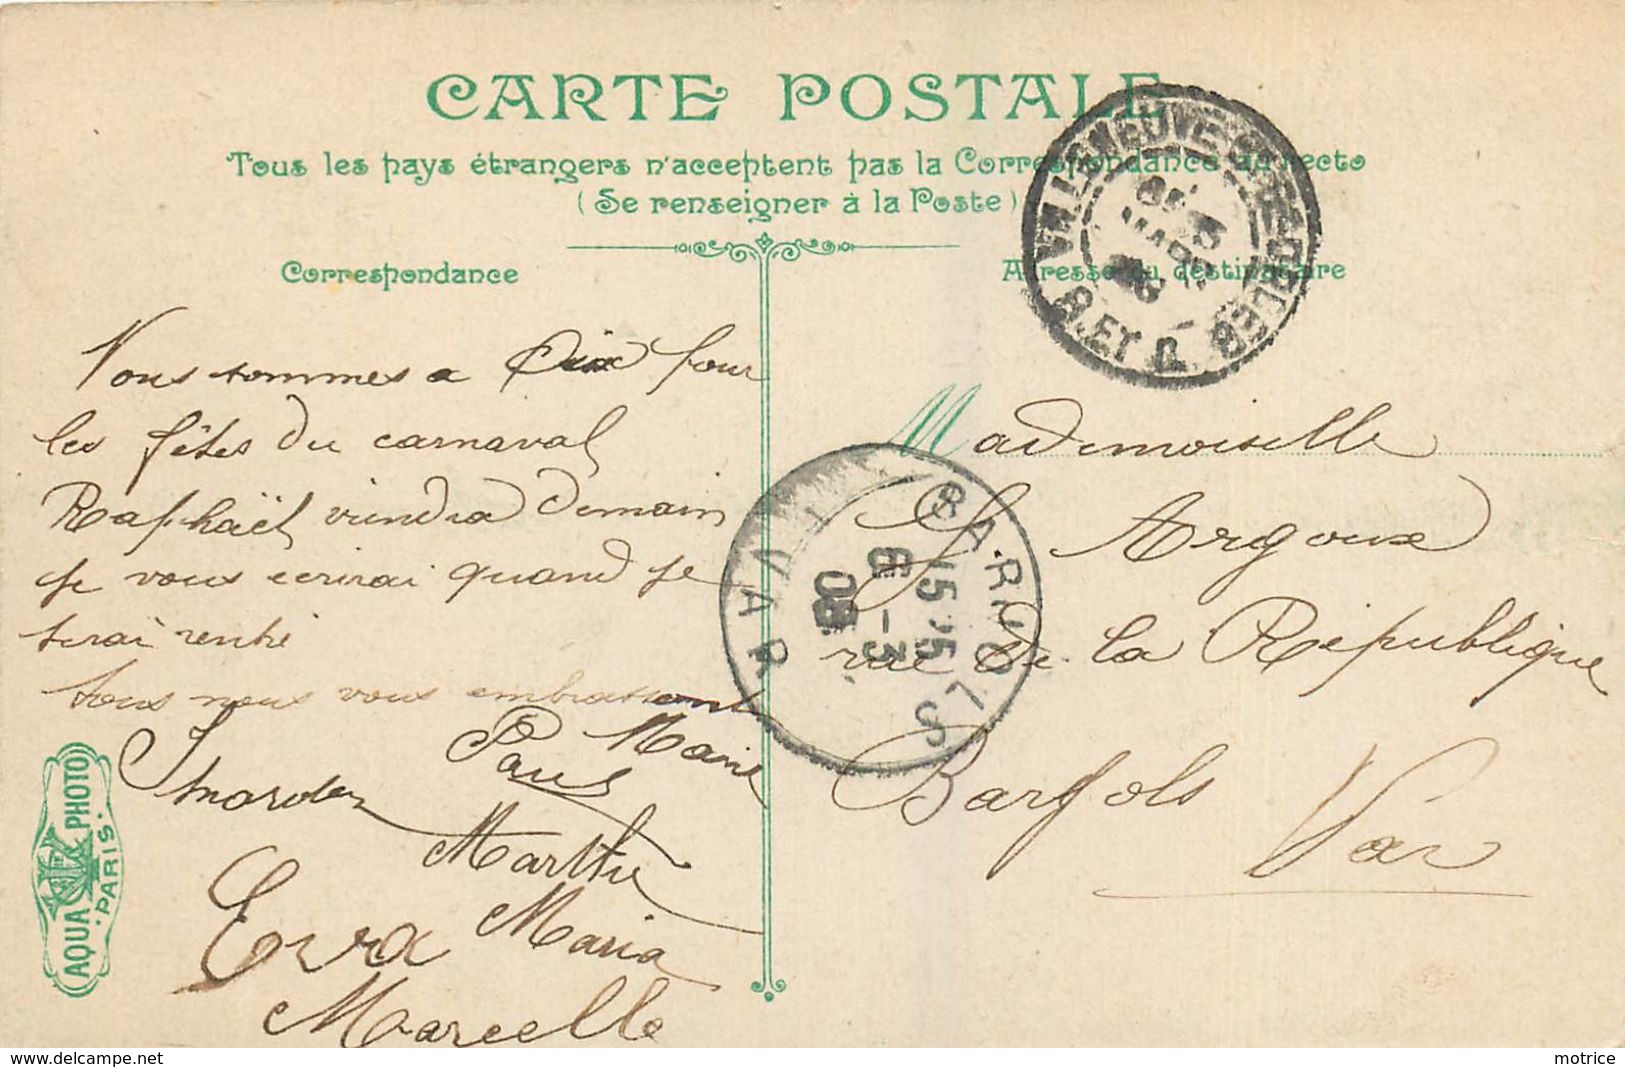 CARTE POSTALE
Tous les pays étrangers n'acceptent pas la Correspondance au recto
(Se renseigner à la Poste)
Correspondance
Adresse du destinataire
Nous sommes a Aix pour
les fêtes du carnaval
Raphaël viendra demain
je vous ecrirai quand je
serai rentré
tous nous vous embrassons
Paul Marie
Marthe
Eva Maria
Marcelle
AQUA PHOTO
PARIS
Mademoiselle
J Argoux
rue de la République
Barjols
Var
VILLENEUVE
B. ET D. R.
MARS
BARJOLS
VAR
15 25
6 -3
08
delcampe.net
motrice